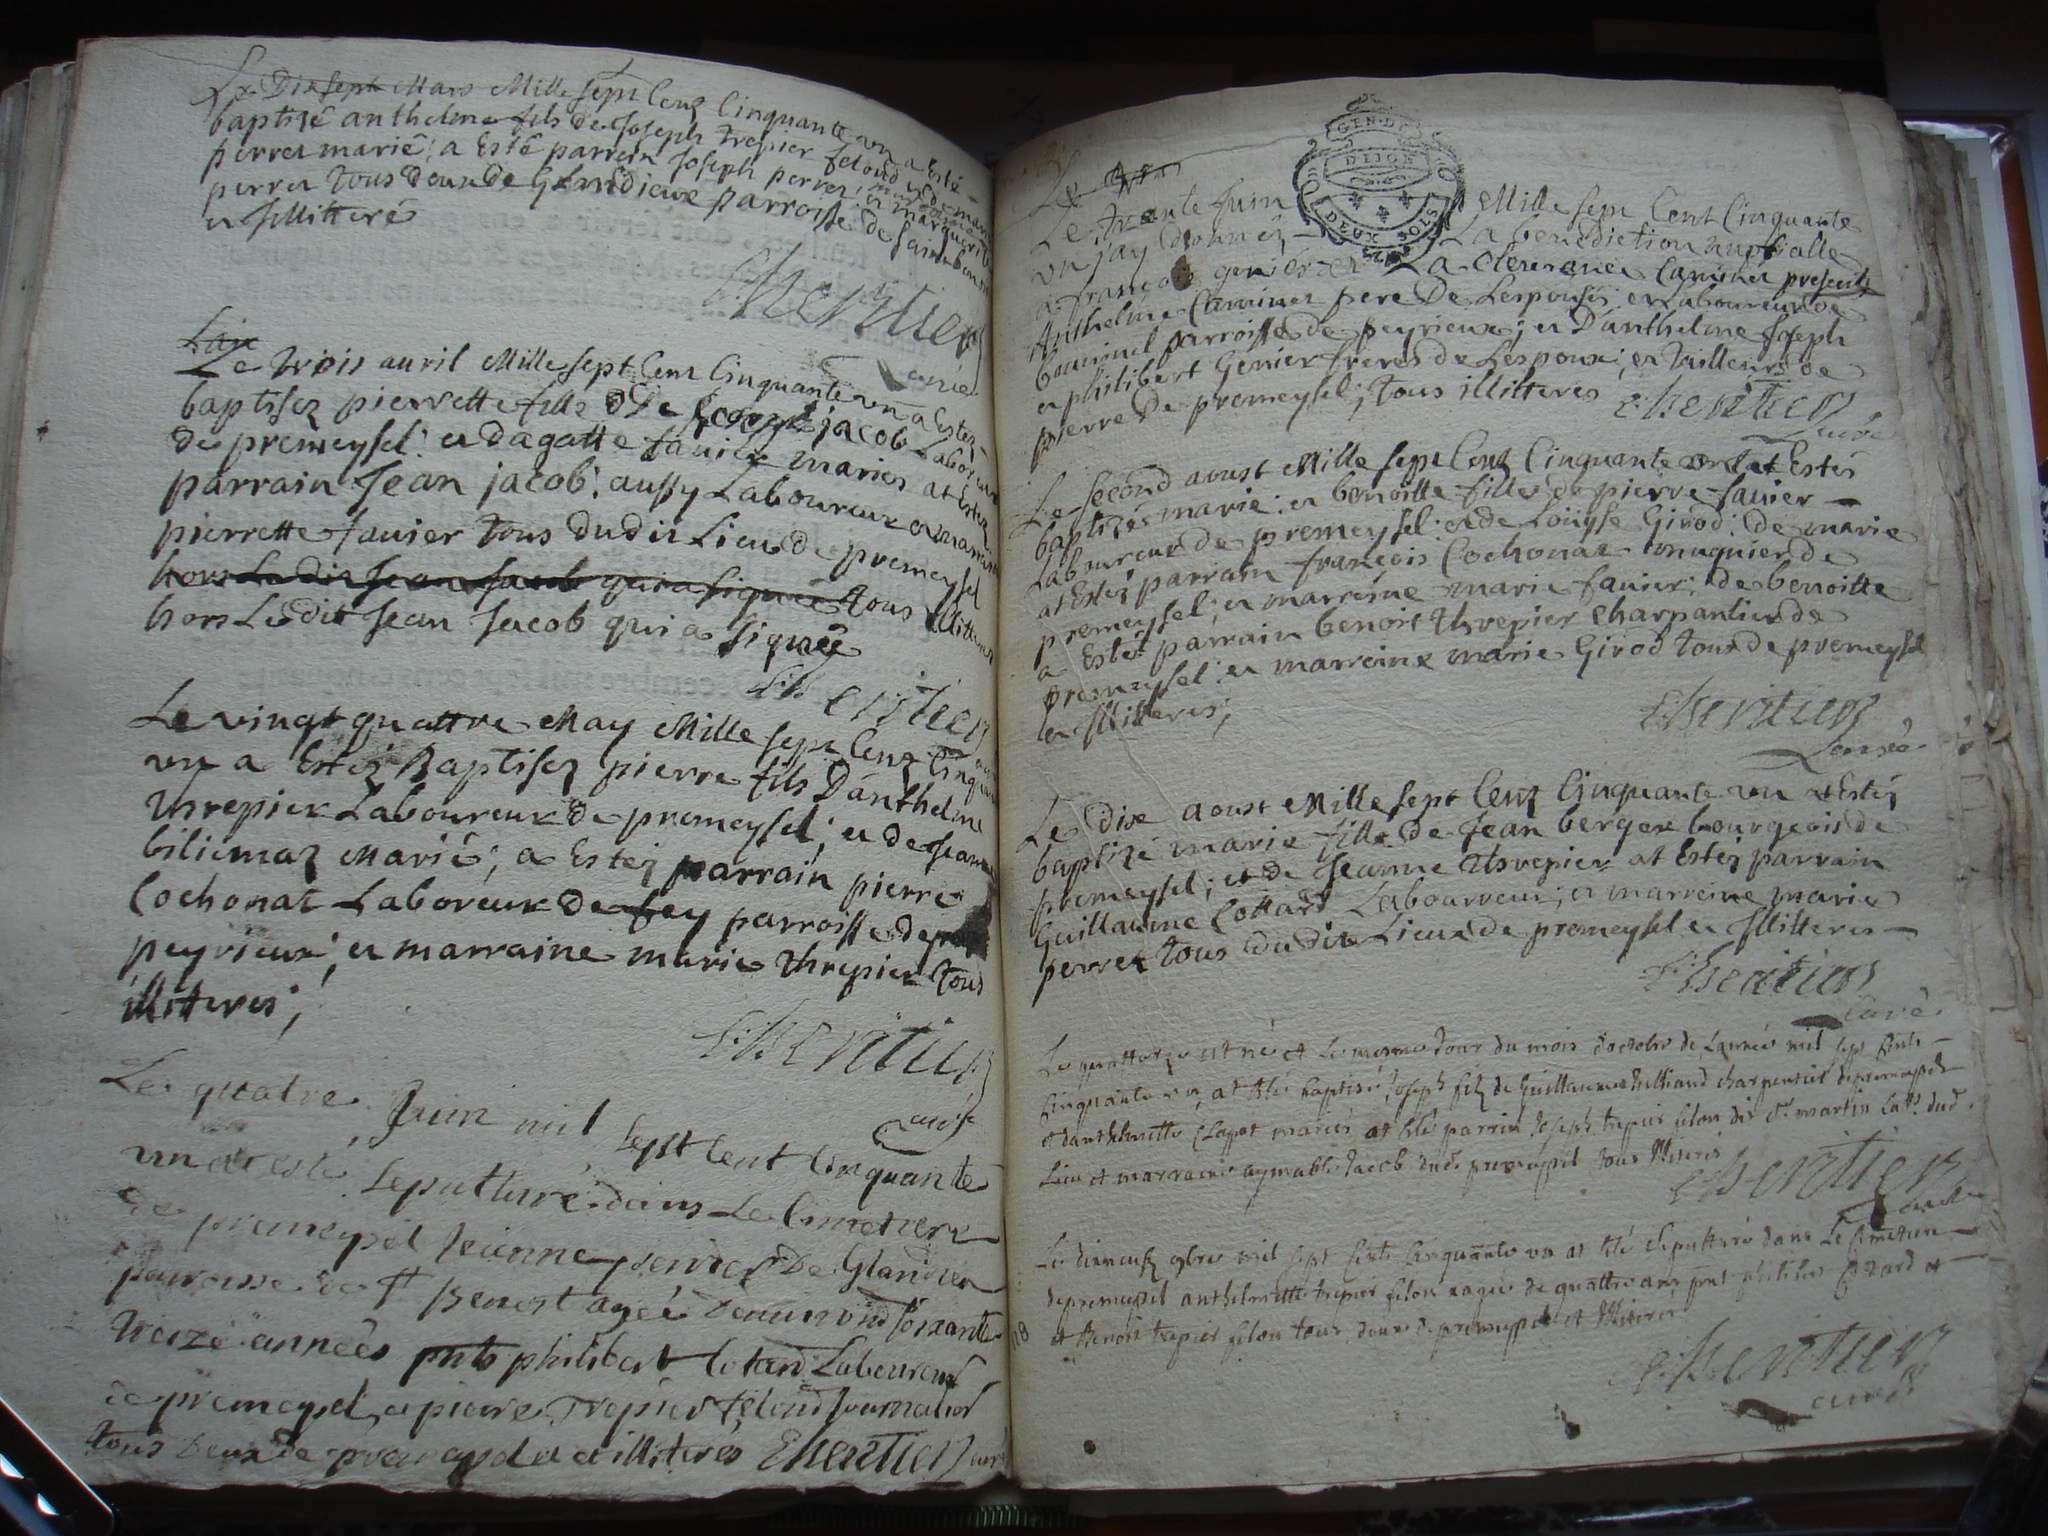 Le Dix sept Mars Mille sept Cent Cinquante un a Esté
baptizé anthelme fils de Joseph trepier felond et de marie
perret marié; a Esté parrein Joseph perret; et marguerite
perret tous deux de Glandieux parroisse de saint benoist
et Jllitteré
Lan
Le trois auril Mille sept Cent Cinquante un a Estez
baptisez pierrette fille De jacob Laboureur
de premeysel: et dagatte fauier mariés at Estez
parrain Jean jacob: aussy Laboureur et marraine
pierrette fauier tous dudit Lieu de premeysel
hors Ledit Jean Jacob qui a signée tous illitteres
hors Ledit Jean Jacob qui a signéé
Le vingt quattre May Mille sept Cent Cinquante
un a Estéz Baptisez pierre fils D'anthelme
threpier Laboureur de premeysel; et de Jeanne
biliemaz Marié; a Estez parrain pierre
Cochonat Laboreur de fey parroisse de
peyrieux; et marraine marie threpier tous
illitteres;
curé
Le quatre Juin mil sept cent Cinquante
un at esté sepulturé dans Le Cimetiere
de premeysel Jeanne perret De Glandieu
paroisse de st Benoist agéé denuiron soixante
treize années pnts philibert Cotard Laboureur
de premeysel, et pierre Trepier felond Journalier
tous deux de premeysel et illiterés
GEN. DE
DIJON
DEUX SOLS
Le trante Juin Mille sept Cent Cinquante
un jay donnéz La benediction nuptialle
a françois genier et a Clemence Caminet presents
Anthelme Caminet pere De Lespousée et Laboureur de
parroisse de peyrieux; et D'anthelme Joseph
et philibert Genier freres de Lespoux; et tailleurs de
pierre De premeysel; tous illitteres
curé
Le second aoust Mille sept Cent Cinquante un at Estés
baptizés marie: et benoitte filles de pierre fauier
Laboureur de premeysel: et de Loüyse Girod: de marie
at Estéz parrain françois Cochonat de
premeysel; et marreine marie fauier; de benoitte
a Estéz parrain benoist threpier charpantier de
premeysel: et marreine marie Girod tous de premeysel
et Jllitteres;
curé
Le dix aoust Mille sept Cent Cinquante un at Estéz
baptizé marie fille de Jean berger bourgeois de
premeysel; et de Jeanne threpier at Estéz parrain
Guillaume Cottard Laboureur; et marreine marie
perret tous dudit Lieux de premeysel et Jllitteres
curé
Le quattorze est né et Le mesme Jour du mois doctobre de Lannée mil sept Cents
Cinquante un, at été baptisé Joseph fils de Guillaume charpentier de premeysel
et danthelmette Clapot mariés at été parrin Joseph trepier felon dit St martin Labr. dud.
Lieu et marraine aymable Jacob dud. premeysel tous Jlliterés
curé
Le dixneuf 9bre mil sept Cents Cinquante un at été sepulturé dans Le Cimetiere
de premeysel anthelmette trepier felon agée de quattre ans pnt philibert Cottard et
et Benoit trepier felon tous deux de premeysel et Jlliteré
118
curé